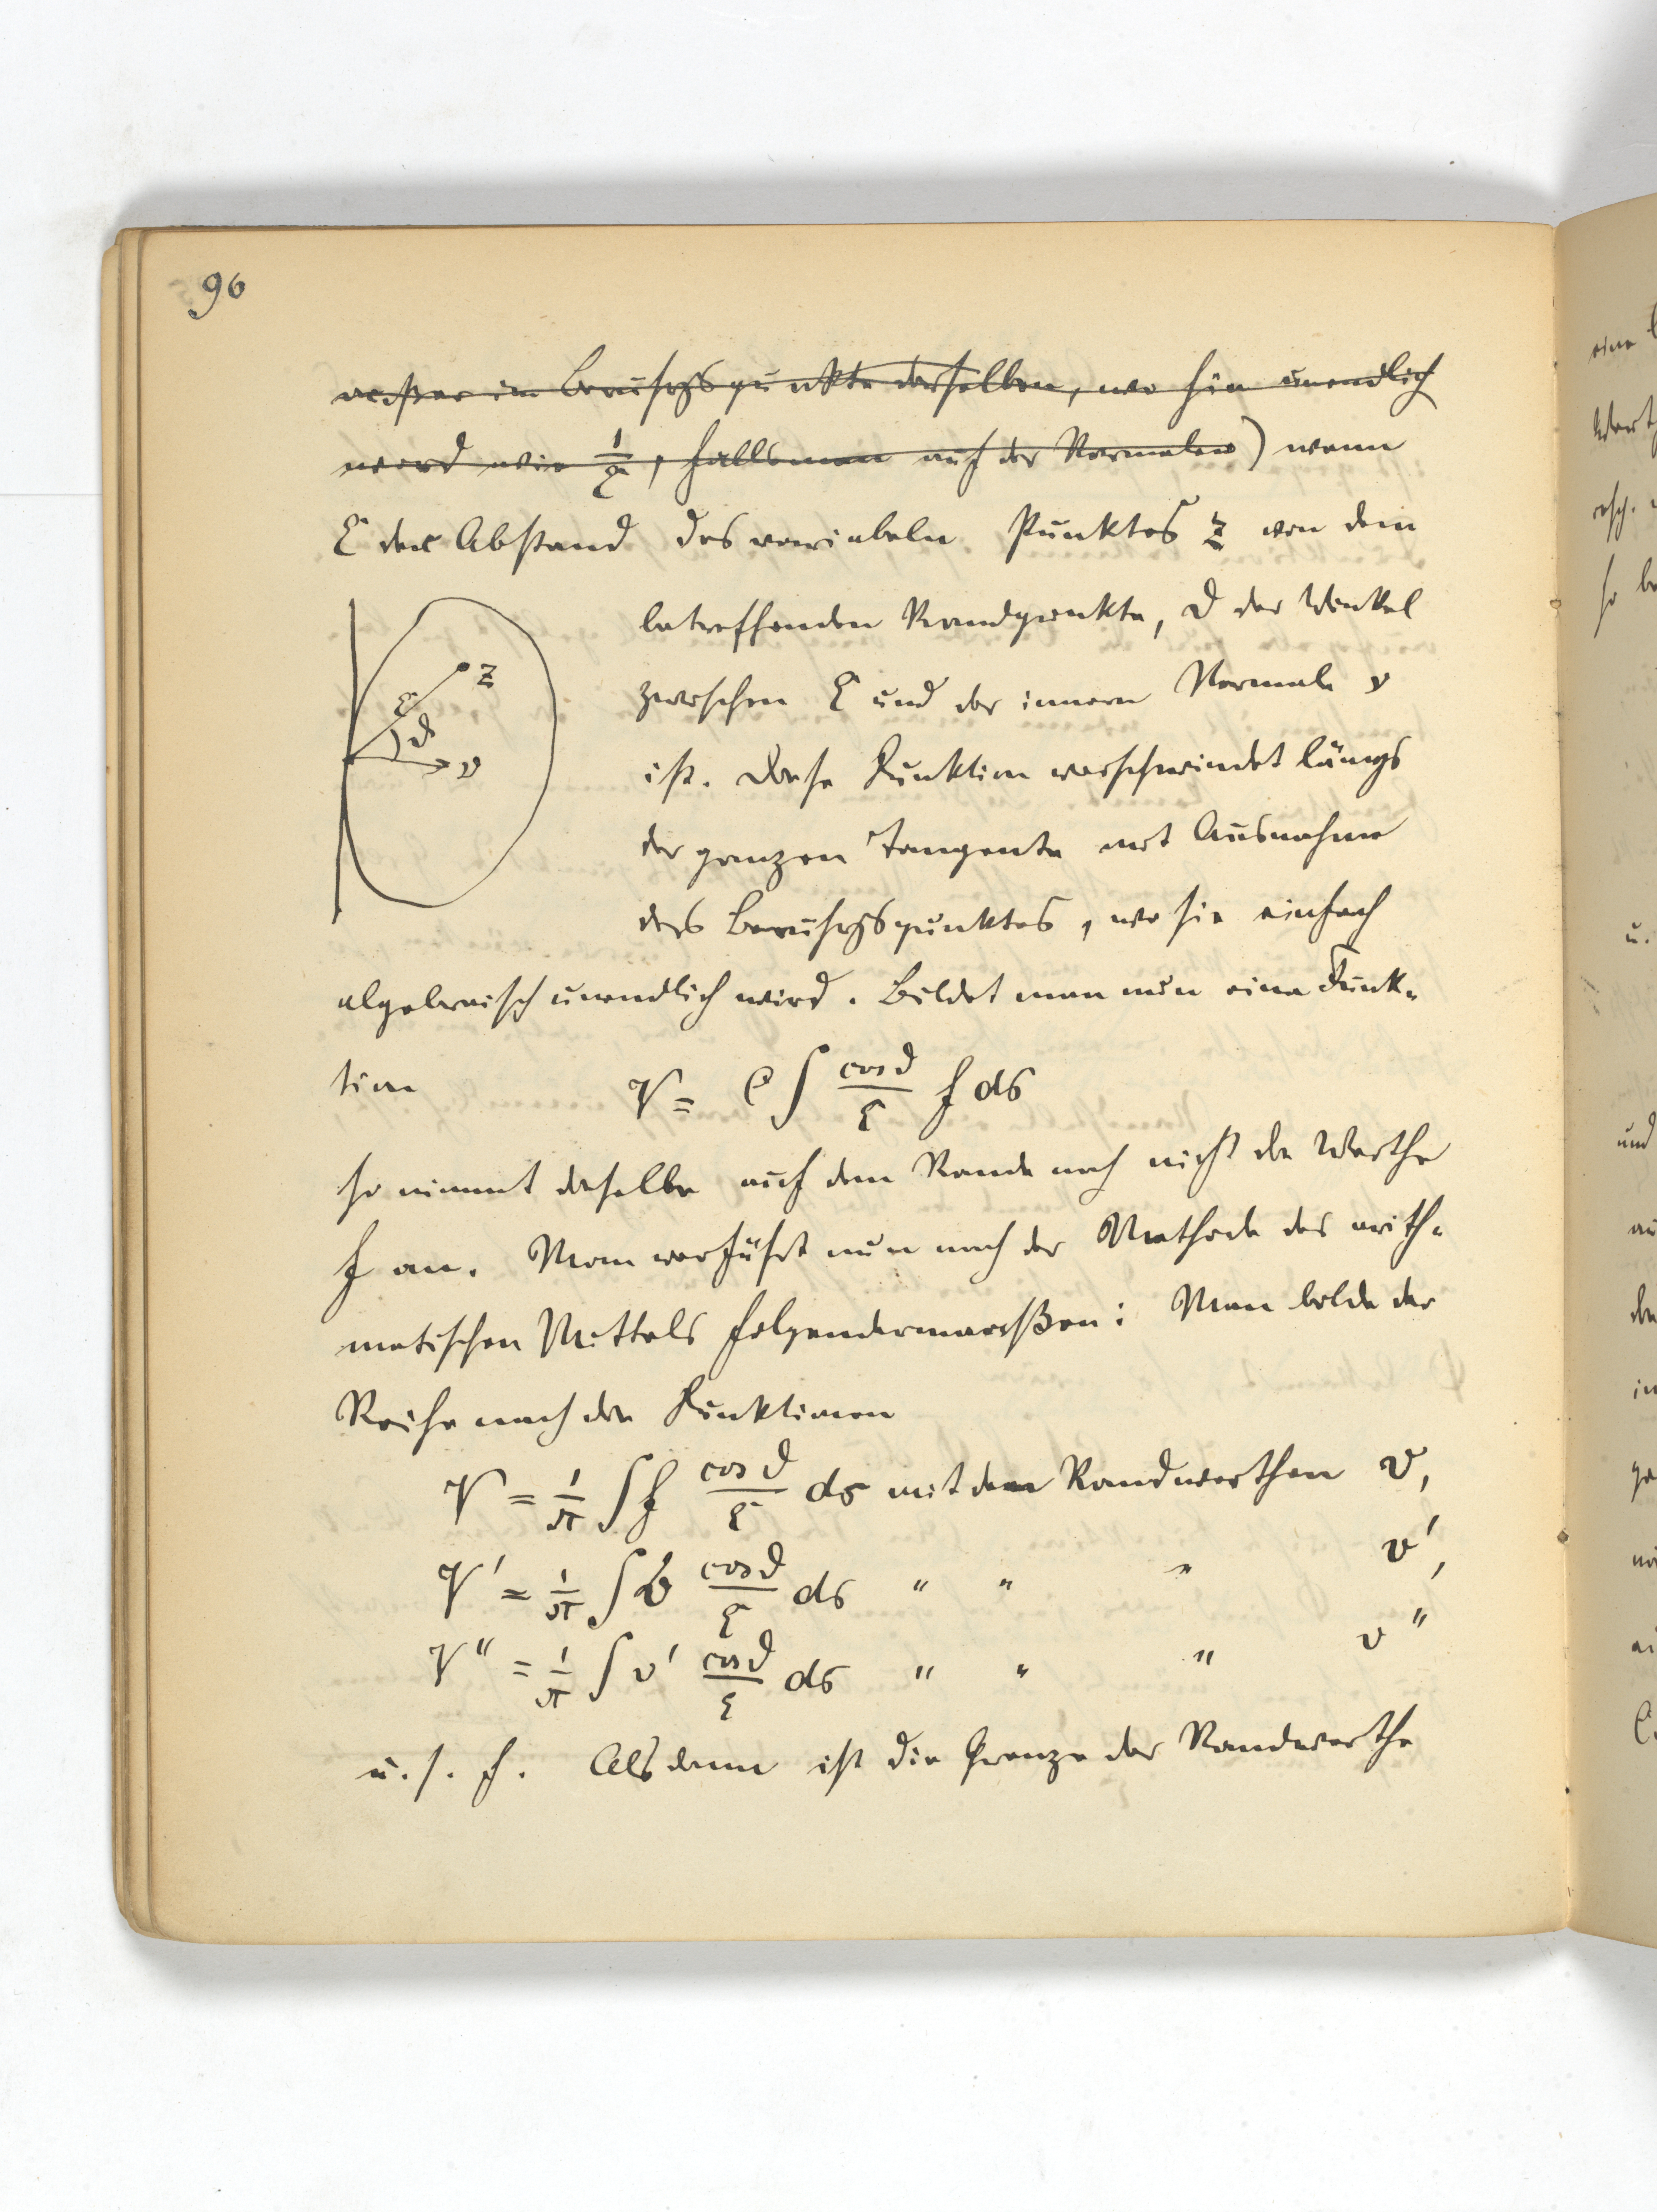 96
außer im Berührgspunkte derselben, wo sie unendlich
wird wie 1/ξ, falls man auf der Normalen) wenn
ξ der Abstand des variabeln Punktes z von dem
betreffenden Randpunkte, ϑ der Winkel
zwischen ξ und der innern Normale ν
ist. Diese Funktion verschwindet längs
der ganzen Tangente mit Ausnahme
des Berührgspunktes, wo sie einfach
algebraisch unendlich wird. Bildet man nun eine Funk-
tion V = C ∫ cos ϑ/ξ f ds
so nimmt dieselbe auf dem Rande noch nicht die Werthe
f an. Man verfährt nun nach der Methode des arith-
metischen Mittels folgendermaaßen: Man bilde der
Reihe nach die Funktionen
V = 1/π ∫ f cos ϑ/ξ ds mit den Randwerthen v,
V' = 1/π ∫ v cos ϑ/ξ ds " " " v',
V" = 1/π ∫ v' cos ϑ/ξ ds " " " v"
u. s. f. Alsdann ist die Grenze der Randwerthe
z
ξ
ϑ
ν